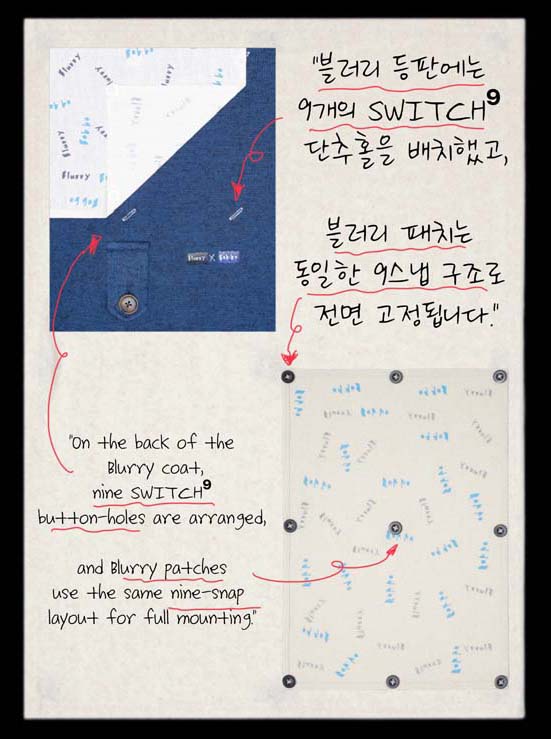 "블러리 등판에는
9개의 SWITCH⁹
단추홀을 배치했고,
블러리 패치는
동일한 9스냅 구조로
전면 고정됩니다."
Blurry
Bobbo
Blurry
Bobbo
Blurry
Bobbo
Blurry
Bobbo
Blurry X Bobbo
"On the back of the
Blurry coat,
nine SWITCH⁹
button-holes are arranged,
and Blurry patches
use the same nine-snap
layout for full mounting."